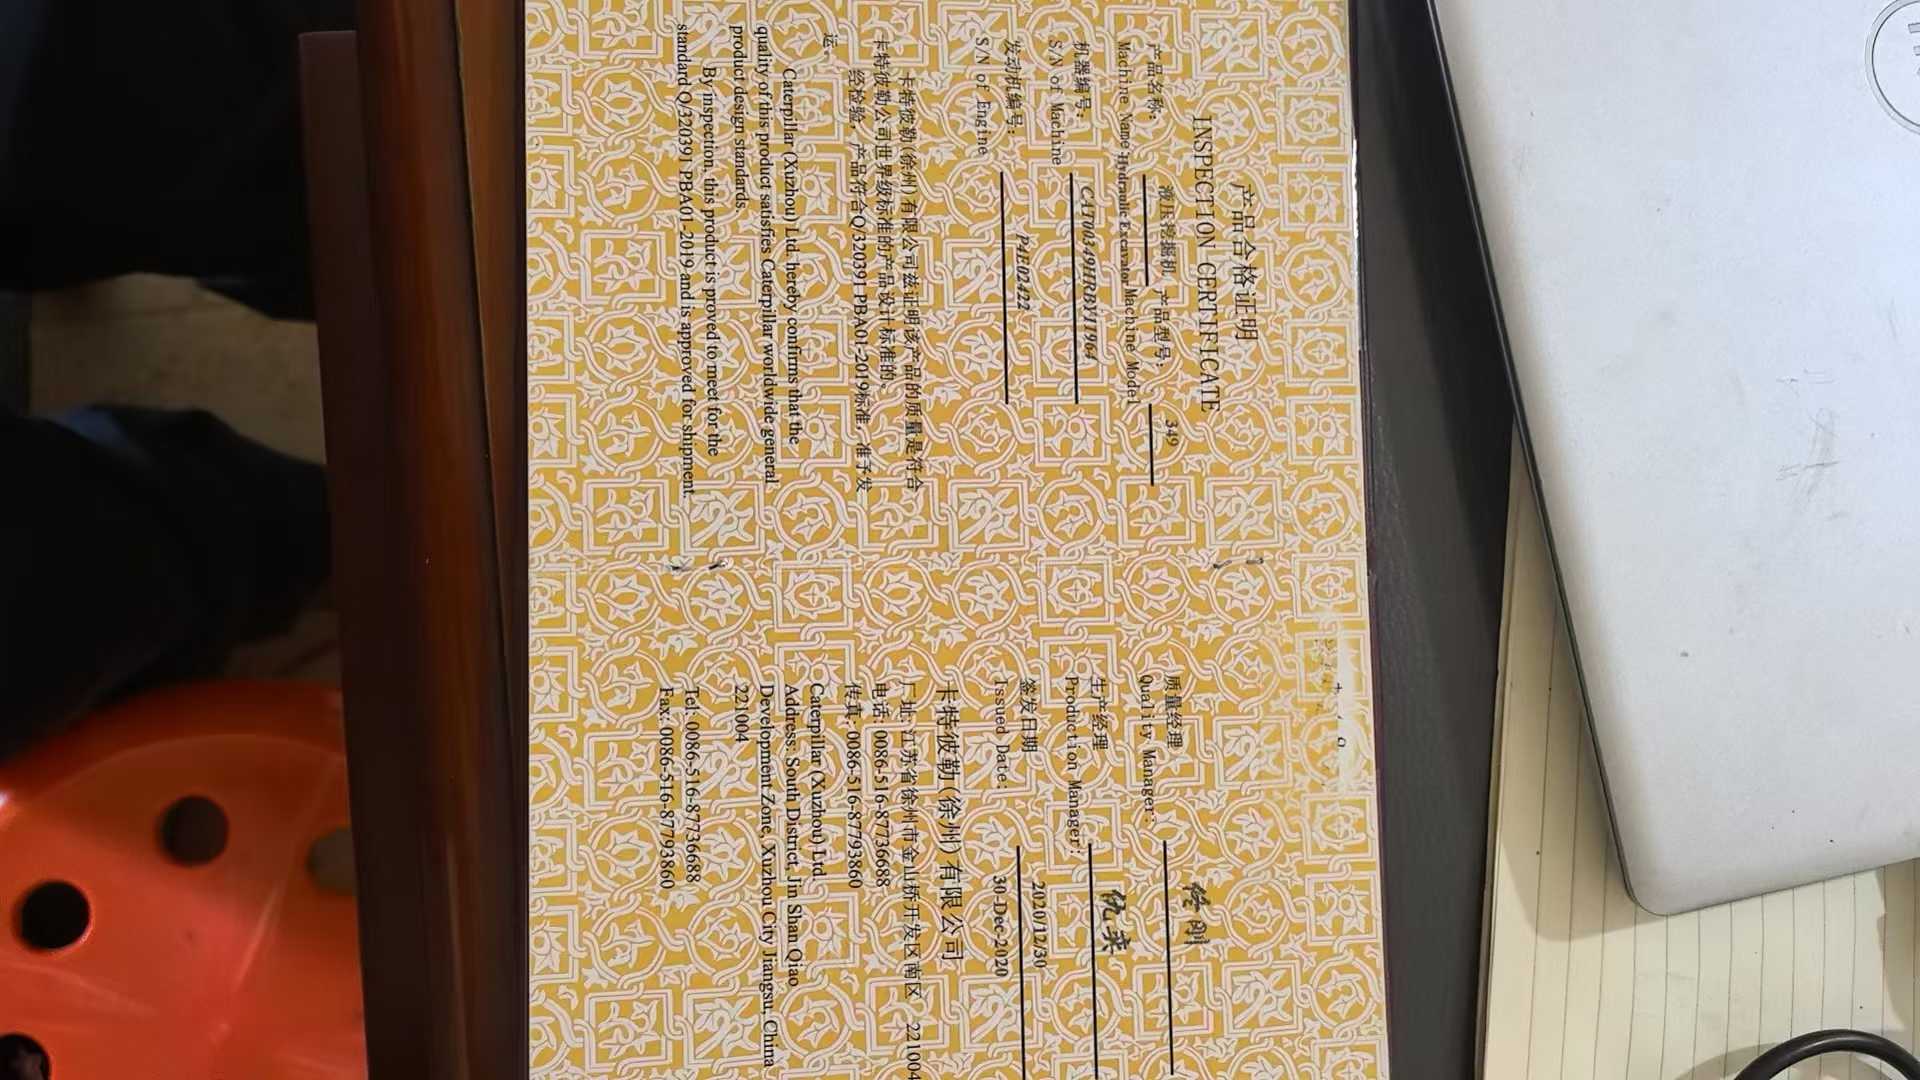 产品合格证明
INSPECTION CERTIFICATE
产品名称: 液压挖掘机 产品型号: 349
Machine Name Hydraulic Excavator Machine Model
机器编号: CAT00349HRBY11964
S/N of Machine
发动机编号: P4E02422
S/N of Engine
卡特彼勒(徐州)有限公司兹证明该产品的质量是符合
卡特彼勒公司世界级标准的产品设计标准的。
经检验,产品符合Q/320391 PBA01-2019标准,准予发
运。
Caterpillar (Xuzhou) Ltd. hereby confirms that the
quality of this product satisfies Caterpillar worldwide general
product design standards.
By inspection, this product is proved to meet for the
standard Q/320391 PBA01-2019 and is approved for shipment.
质量经理
Quality Manager:
生产经理
Production Manager:
签发日期 2020/12/30
Issued Date: 30-Dec-2020
卡特彼勒(徐州)有限公司
厂址: 江苏省徐州市金山桥开发区南区 221004
电话: 0086-516-87736688
传真: 0086-516-87793860
Caterpillar (Xuzhou) Ltd.
Address: South District, Jin Shan Qiao
Development Zone, Xuzhou City Jiangsu, China
221004
Tel: 0086-516-87736688
Fax: 0086-516-87793860